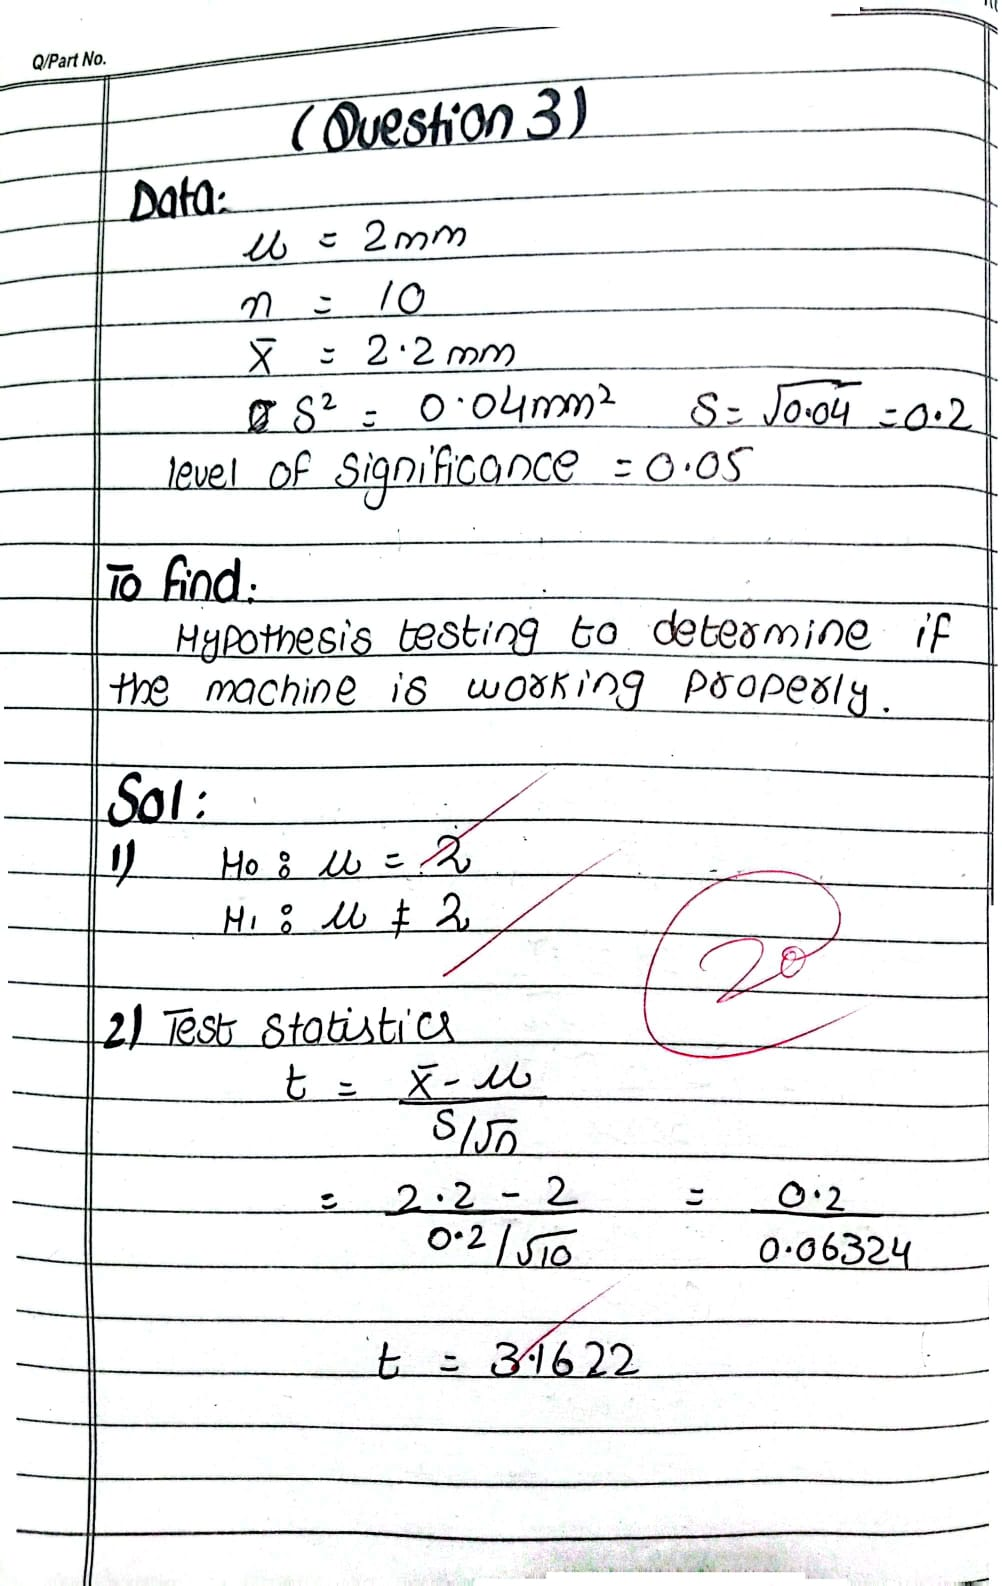 Q/Part No.
(Question 3)
Data:
μ = 2mm
n = 10
x̄ = 2.2 mm
S² = 0.04mm² S = √0.04 = 0.2
level of significance = 0.05
To find:
Hypothesis testing to determine if
the machine is working properly.
Sol:
1) H₀ : μ = 2
H₁ : μ ≠ 2
20
2) Test Statistics
t = x̄ - μ / S/√n
= 2.2 - 2 / 0.2/√10 = 0.2 / 0.06324
t = 3.1622